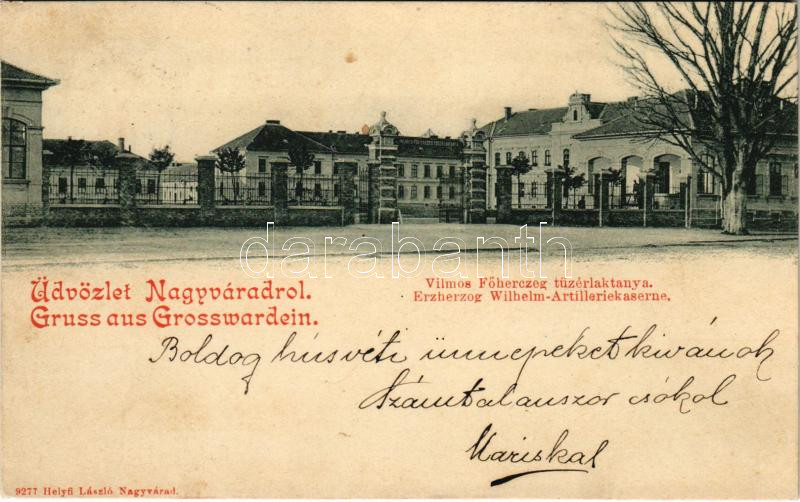 darabanth
Üdvözlet Nagyváradrol.
Gruss aus Grosswardein.
Vilmos Főherczeg tüzérlaktanya.
Erzherzog Wilhelm-Artilleriekaserne.
Boldog húsvéti ünnepeket kivánok
Számtalanszor csókol
Mariskal
9277 Helyfi László Nagyvárad.